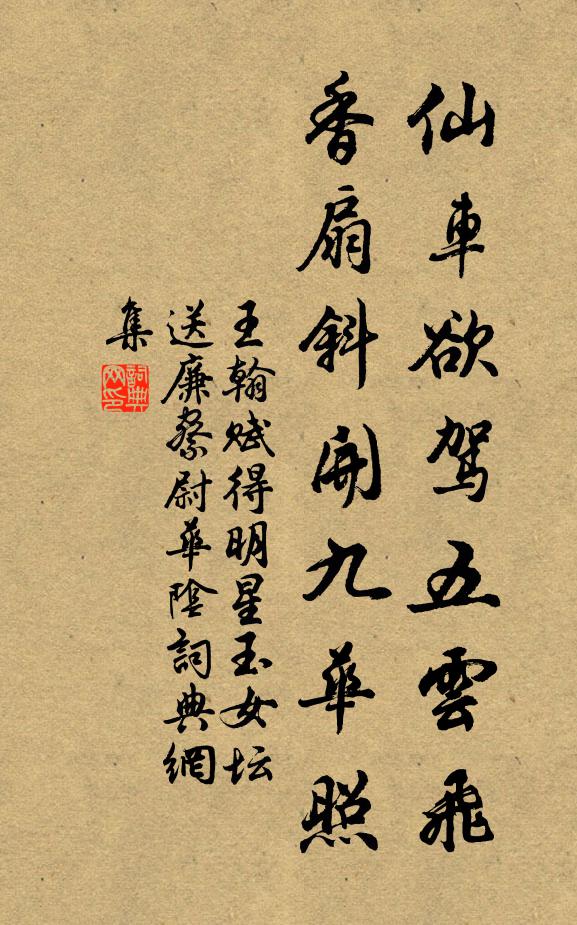 仙車欲駕五雲飛
香扇斜開九華照
王翰賦得明星玉女坛
送廉察尉華陰詞典網
集
詞典網印